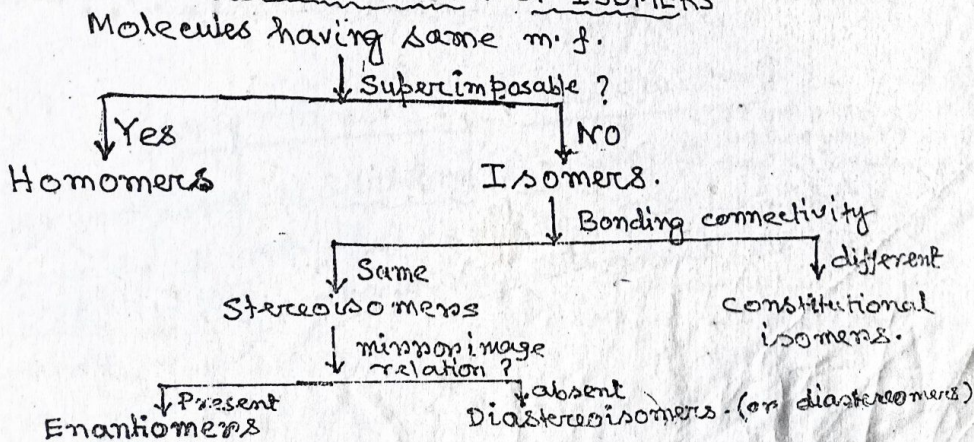 ISOMERS
Molecules having same m.f.
Superimposable ?
Yes
NO
Homomers
Isomers.
Bonding connectivity
Same
different
Stereoisomers
Constitutional
isomers.
mirror image
relation ?
Present
absent
Enantiomers
Diastereoisomers. (or diastereomers)